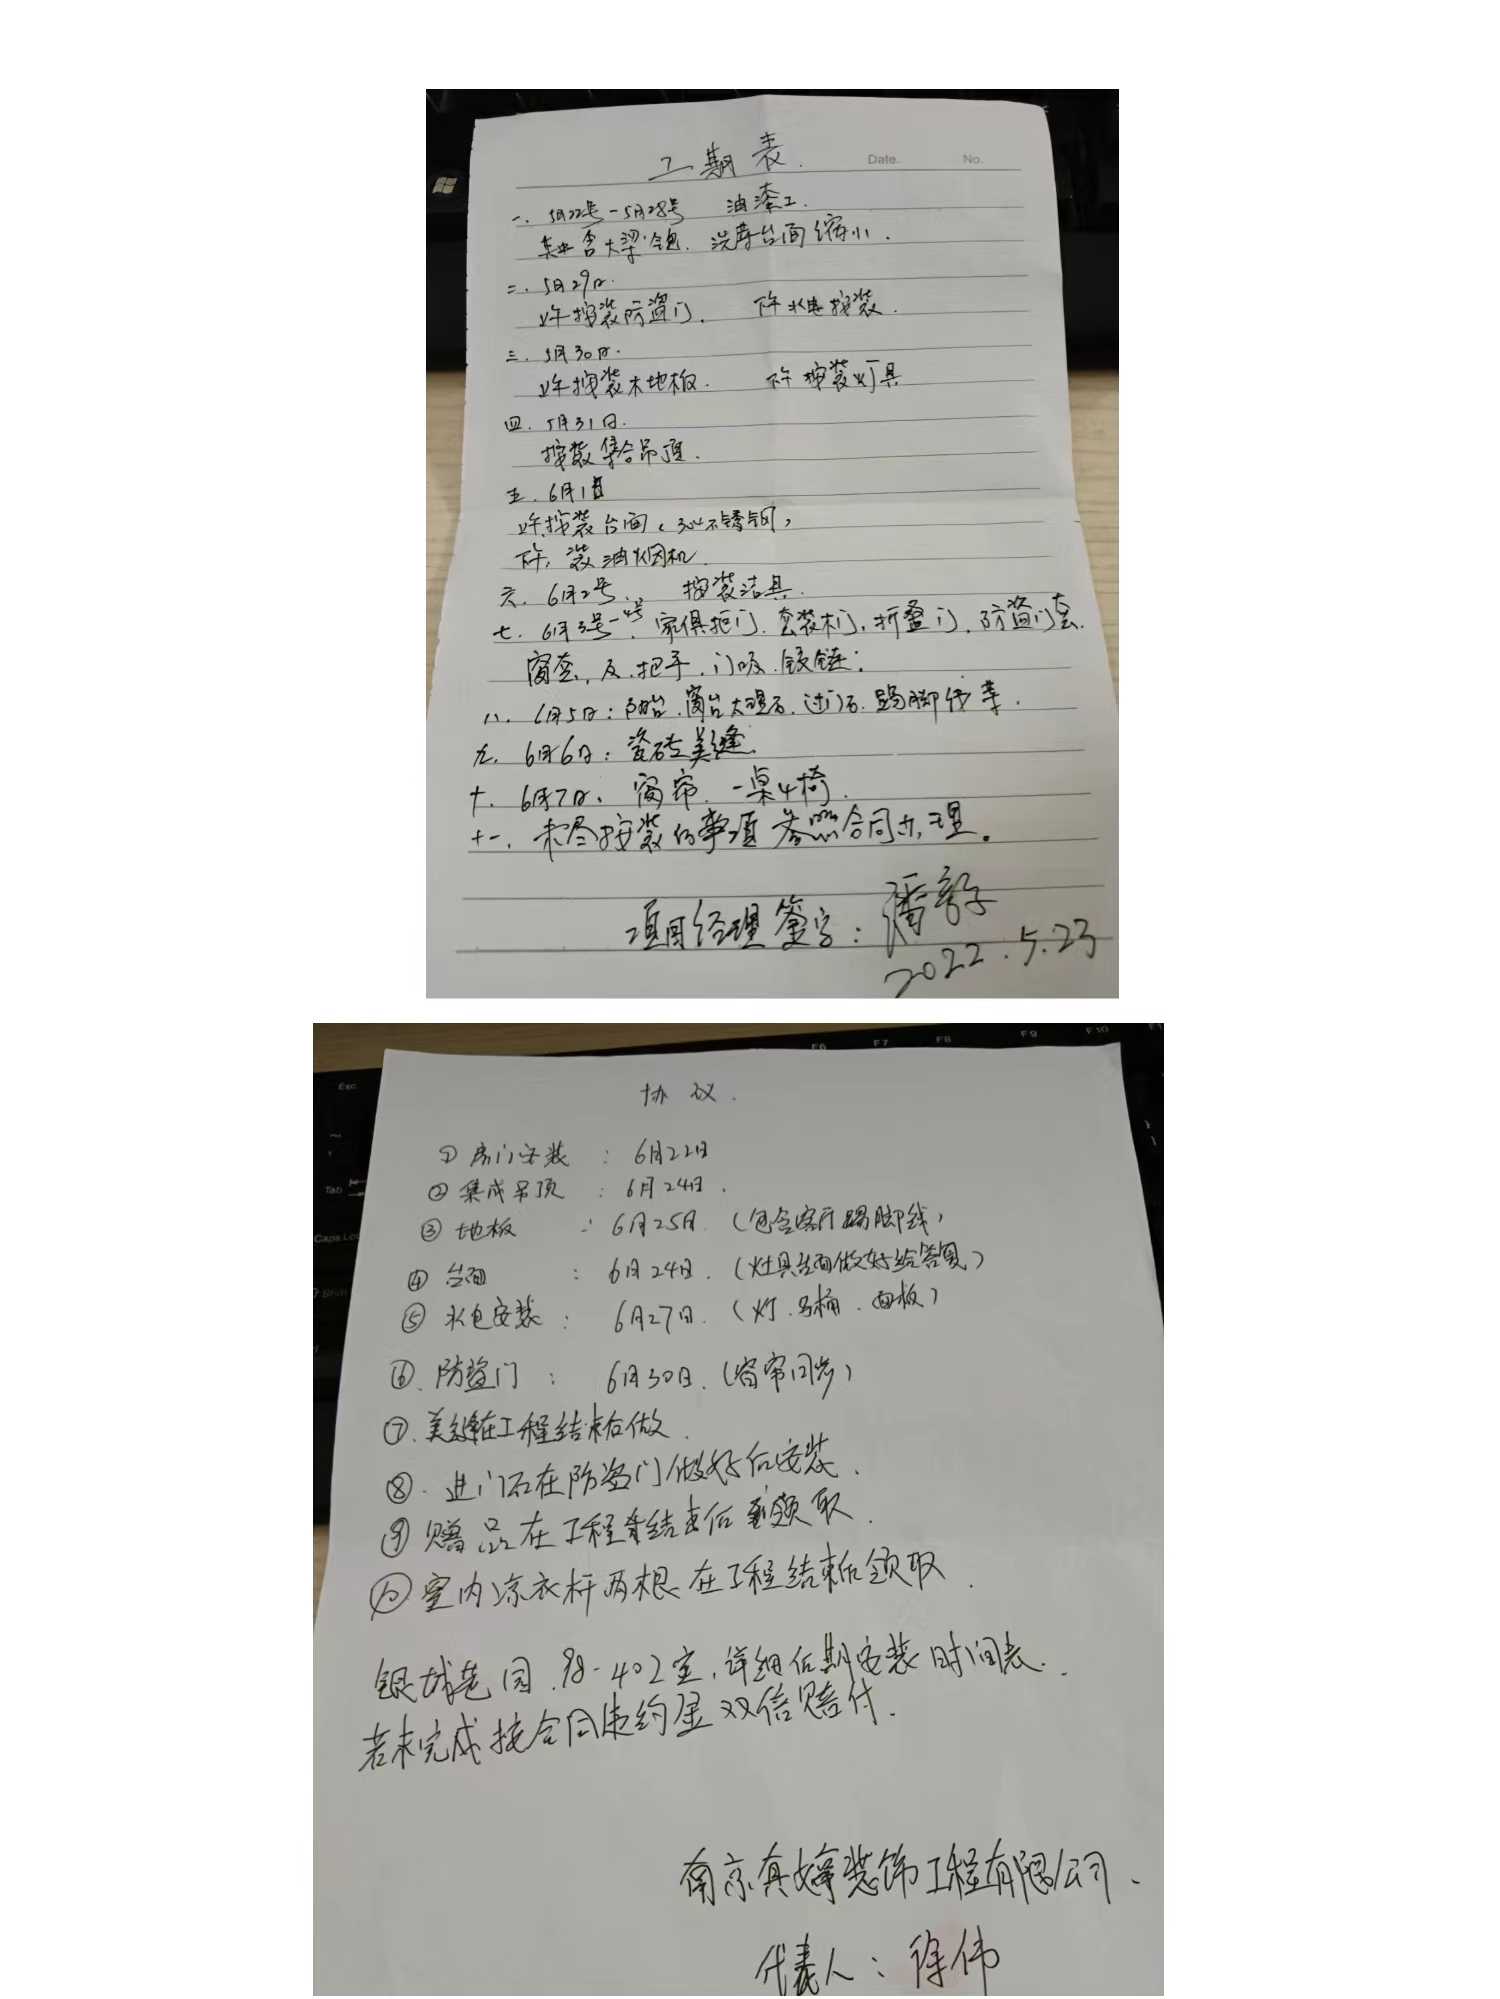 工期表.
Date. No.
一. 5月22号-5月28号 油漆工.
其中含大梁包. 洗来台面缩小.
二. 5月29日.
上午按装防盗门. 下午水电按装.
三. 5月30日.
上午按装木地板. 下午按装灯具
四. 5月31日.
按装集合吊顶.
五. 6月1日
上午按装台面(304不锈钢)
下午, 装油烟机
六. 6月2号. 按装洁具.
七. 6月3号-4号. 家俱柜门. 套装木门. 折叠门. 防盗门套.
窗套, 及. 把手. 门吸. 铰链;
八. 6月5日: 阳台. 窗台大理石. 过门石. 踢脚线等.
九. 6月6日: 瓷砖美缝.
十. 6月7日. 窗帘. 一桌4椅.
十一. 未尽按装的事项 参照合同办理.
项目经理签字:
2022.5.23
F6 F7 F8 F9 F10
Esc
协议.
① 房门安装 : 6月22日
② 集成吊顶 : 6月24日.
Tab
③ 地板 : 6月25日. (包含客厅踢脚线)
④ 台面 : 6月24日. (灶具台面做好给答复)
⑤ 水电安装 : 6月27日. (灯. 马桶. 面板)
⑥. 防盗门 : 6月30日. (窗帘同步)
⑦. 美缝在工程结束后做.
⑧. 进门石在防盗门做好后安装.
⑨ 赠品在工程结束后领取.
⑩ 室内凉衣杆两根在工程结束后领取.
银城花园. 98-402室, 详细后期安装时间表.
若未完成按合同违约金双倍赔付.
南京真婷装饰工程有限公司.
代表人: 徐伟